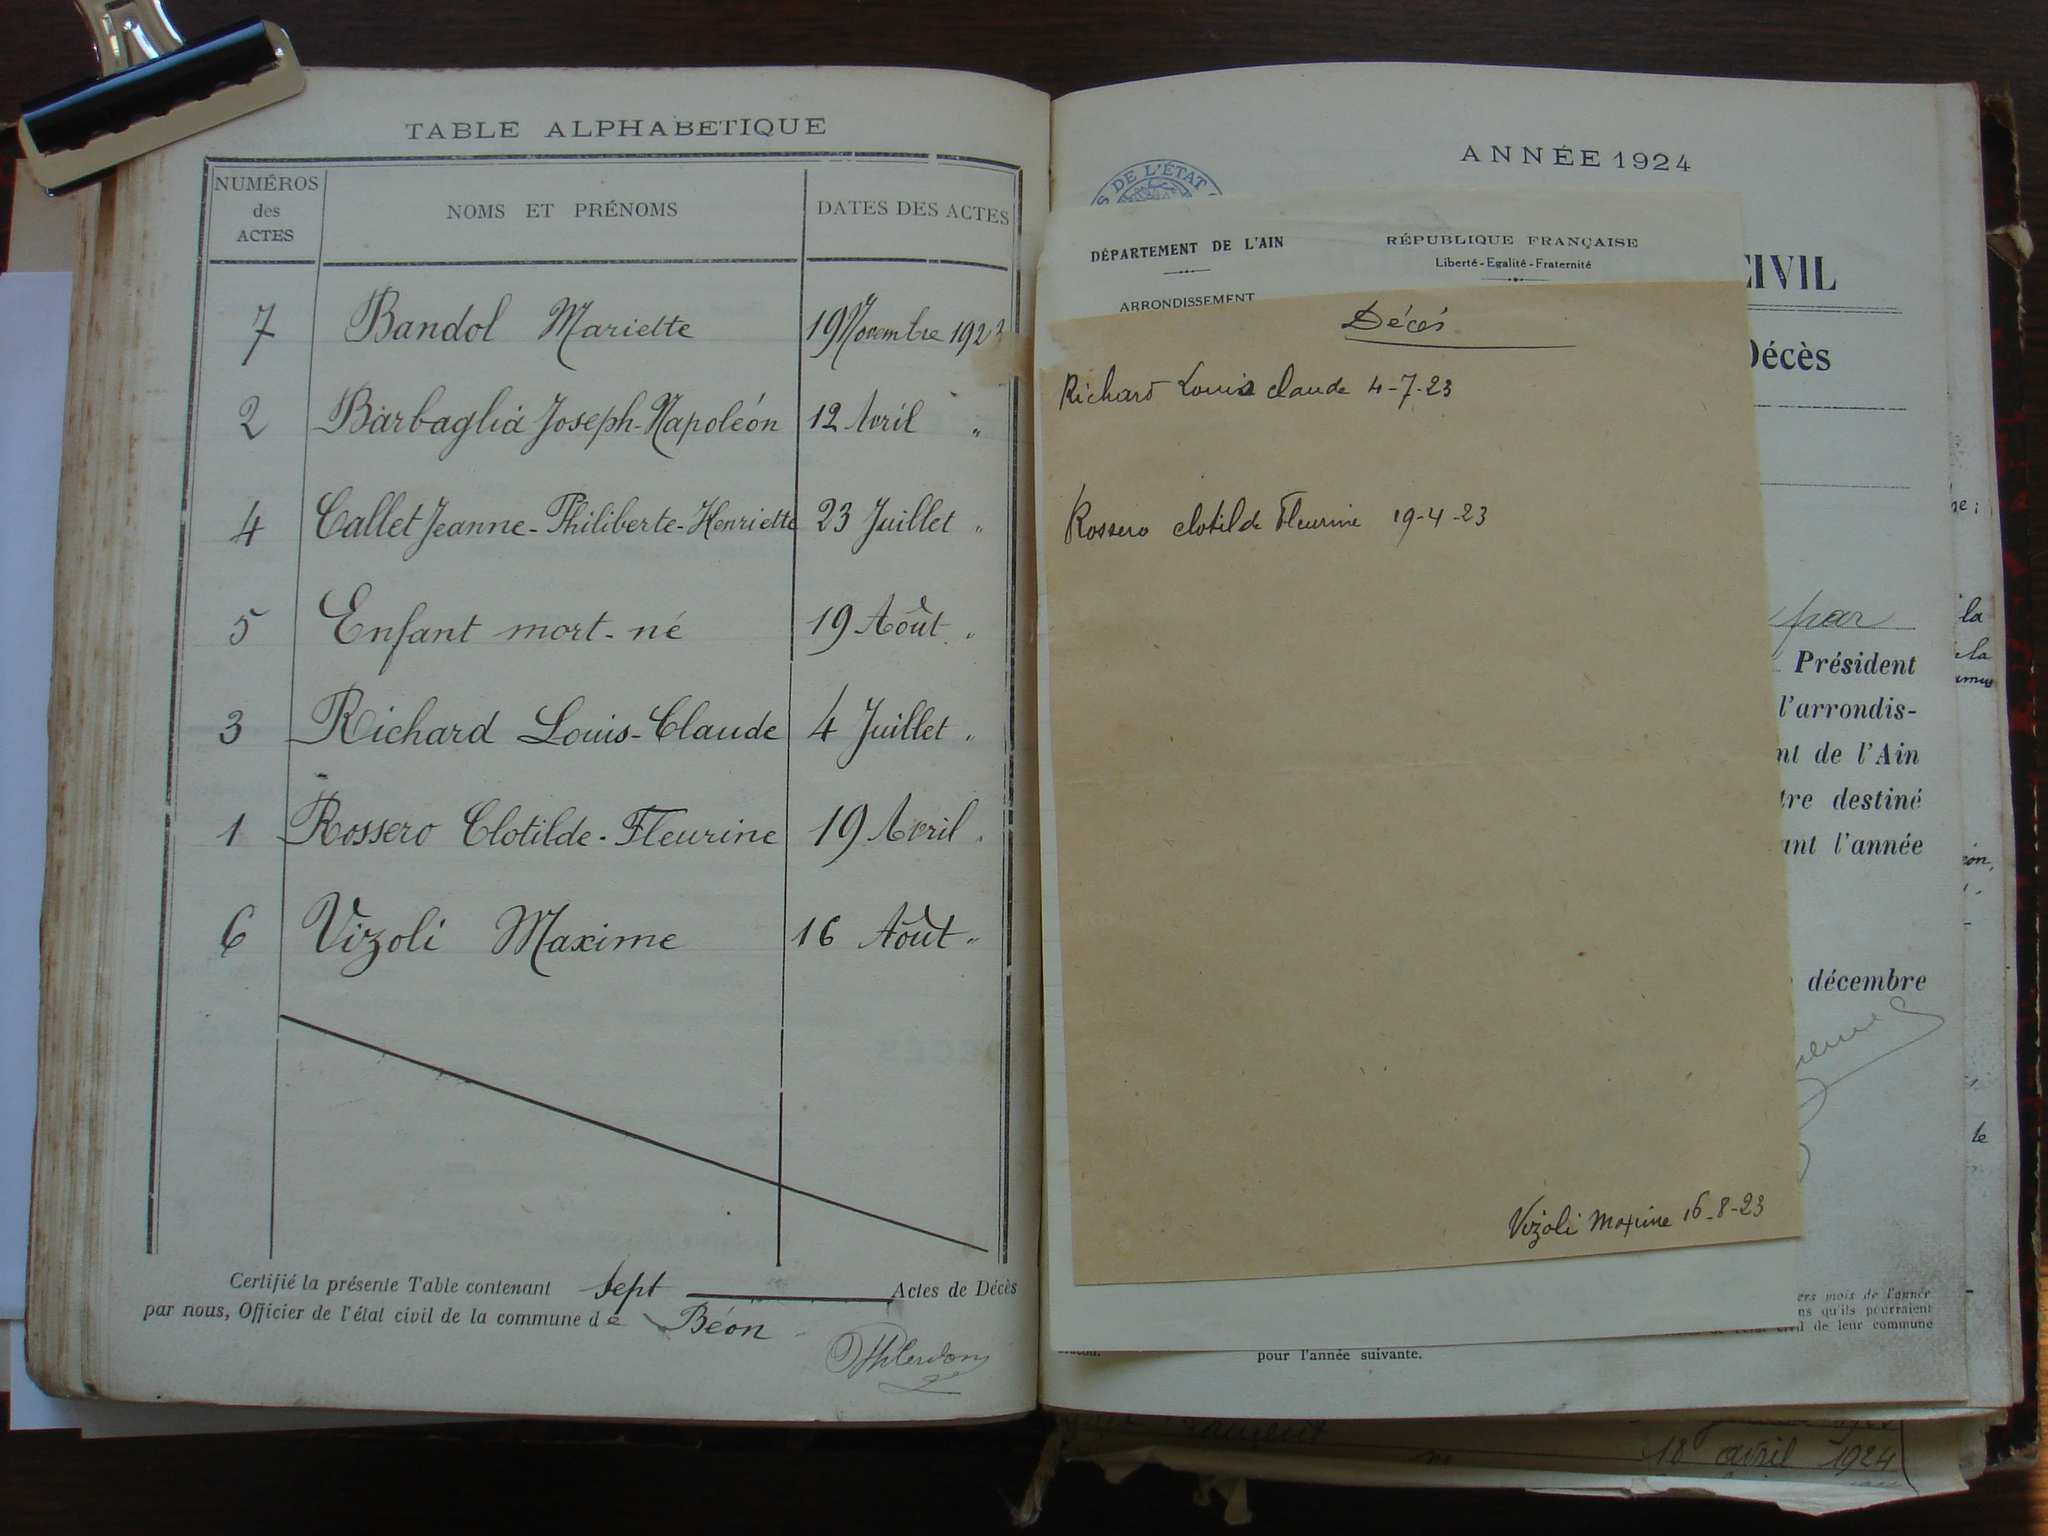 TABLE ALPHABETIQUE
NUMÉROS des ACTES NOMS ET PRÉNOMS DATES DES ACTES
7 Bandol Mariette 19 Novembre 1923
2 Barbaglia Joseph-Napoléon 12 Avril "
4 Callet Jeanne-Philiberte-Henriette 23 Juillet "
5 Enfant mort-né 19 Août "
3 Richard Louis-Claude 4 Juillet "
1 Rossero Clotilde-Fleurine 19 Avril "
6 Vizoli Maxime 16 Août "
Certifié la présente Table contenant sept Actes de Décès
par nous, Officier de l'état civil de la commune de Béon
ANNÉE 1924
DE L'ÉTAT
DÉPARTEMENT DE L'AIN
RÉPUBLIQUE FRANÇAISE
Liberté-Egalité-Fraternité
ARRONDISSEMENT
CIVIL
Décès
Décès
Richard Louis claude 4-7-23
Rossero clotilde Fleurine 19-4-23
Vizoli Maxime 16-8-23
par
la
Président
l'arrondis-
nt de l'Ain
tre destiné
ant l'année
décembre
ers mois de l'année
ns qu'ils pourraient
de leur commune
pour l'année suivante.
18 avril 1924